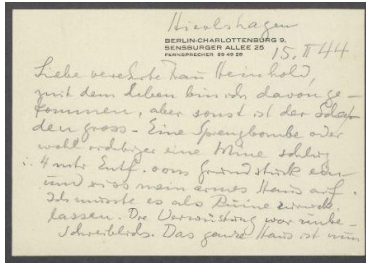 BERLIN-CHARLOTTENBURG 9,
SENSBURGER ALLEE 25
FERNSPRECHER 99 49 26
15. II 44
Liebe verehrte Frau Reinhold,
mit dem Leben bin ich davon ge-
kommen, aber sonst ist der Scha-
den gross - Eine Sprengbombe oder
wohl richtiger eine Mine schlug
4 mtr Entf. vom Grundstück ein
und riss mein armes Haus auf.
Ich musste es als Ruine zurück
lassen. Die Verwüstung war unbe-
schreiblich. Das ganze Haus ist nun